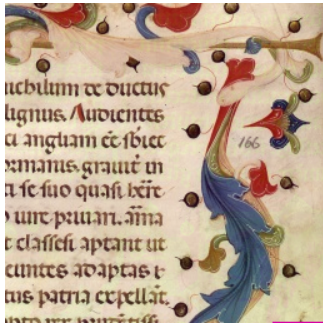 nichilum de ductus
lignus. Audientes
ci angliam eē sbiec
ormanis. grauit̄ in
ti se suo quasi
iure priuari. am̄a
t classes aptant ut
euntes adaptas
tus patria expellāt.
166